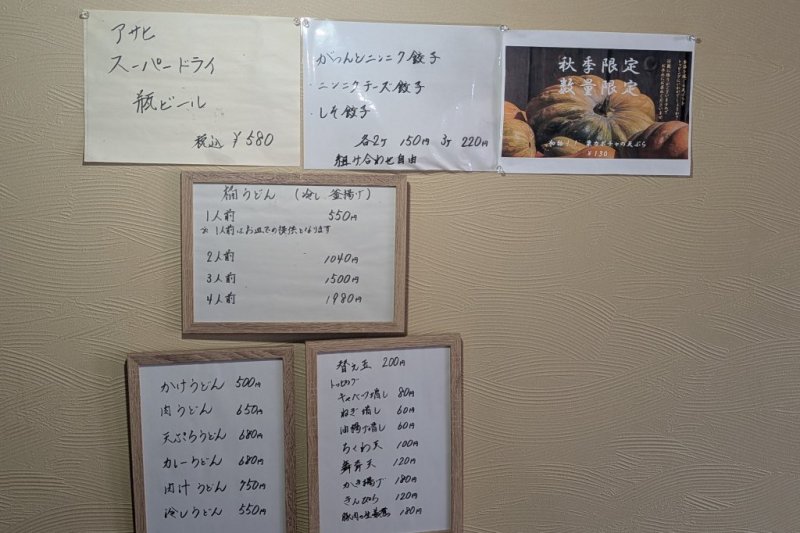 アサヒ
スーパードライ
瓶ビール
税込 ¥580
がっつとニンニク餃子
・ニンニクチーズ餃子
・しそ餃子
各2ケ 150円 3ケ 220円
組け合わせ自由
秋季限定
数量限定
¥130
桶うどん (冷し 釜揚げ)
1人前 550円
※ 1人前はお皿での提供となります
2人前 1040円
3人前 1500円
4人前 1980円
かけうどん 500円
肉うどん 650円
天ぷらうどん 680円
カレーうどん 680円
肉汁うどん 750円
冷しうどん 550円
替え玉 200円
トッピング
キャベツ増し 80円
ねぎ増し 60円
油揚げ増し 60円
ちくわ天 100円
舞茸天 120円
かき揚げ 180円
きんぴら 120円
豚肉の生姜焼 180円